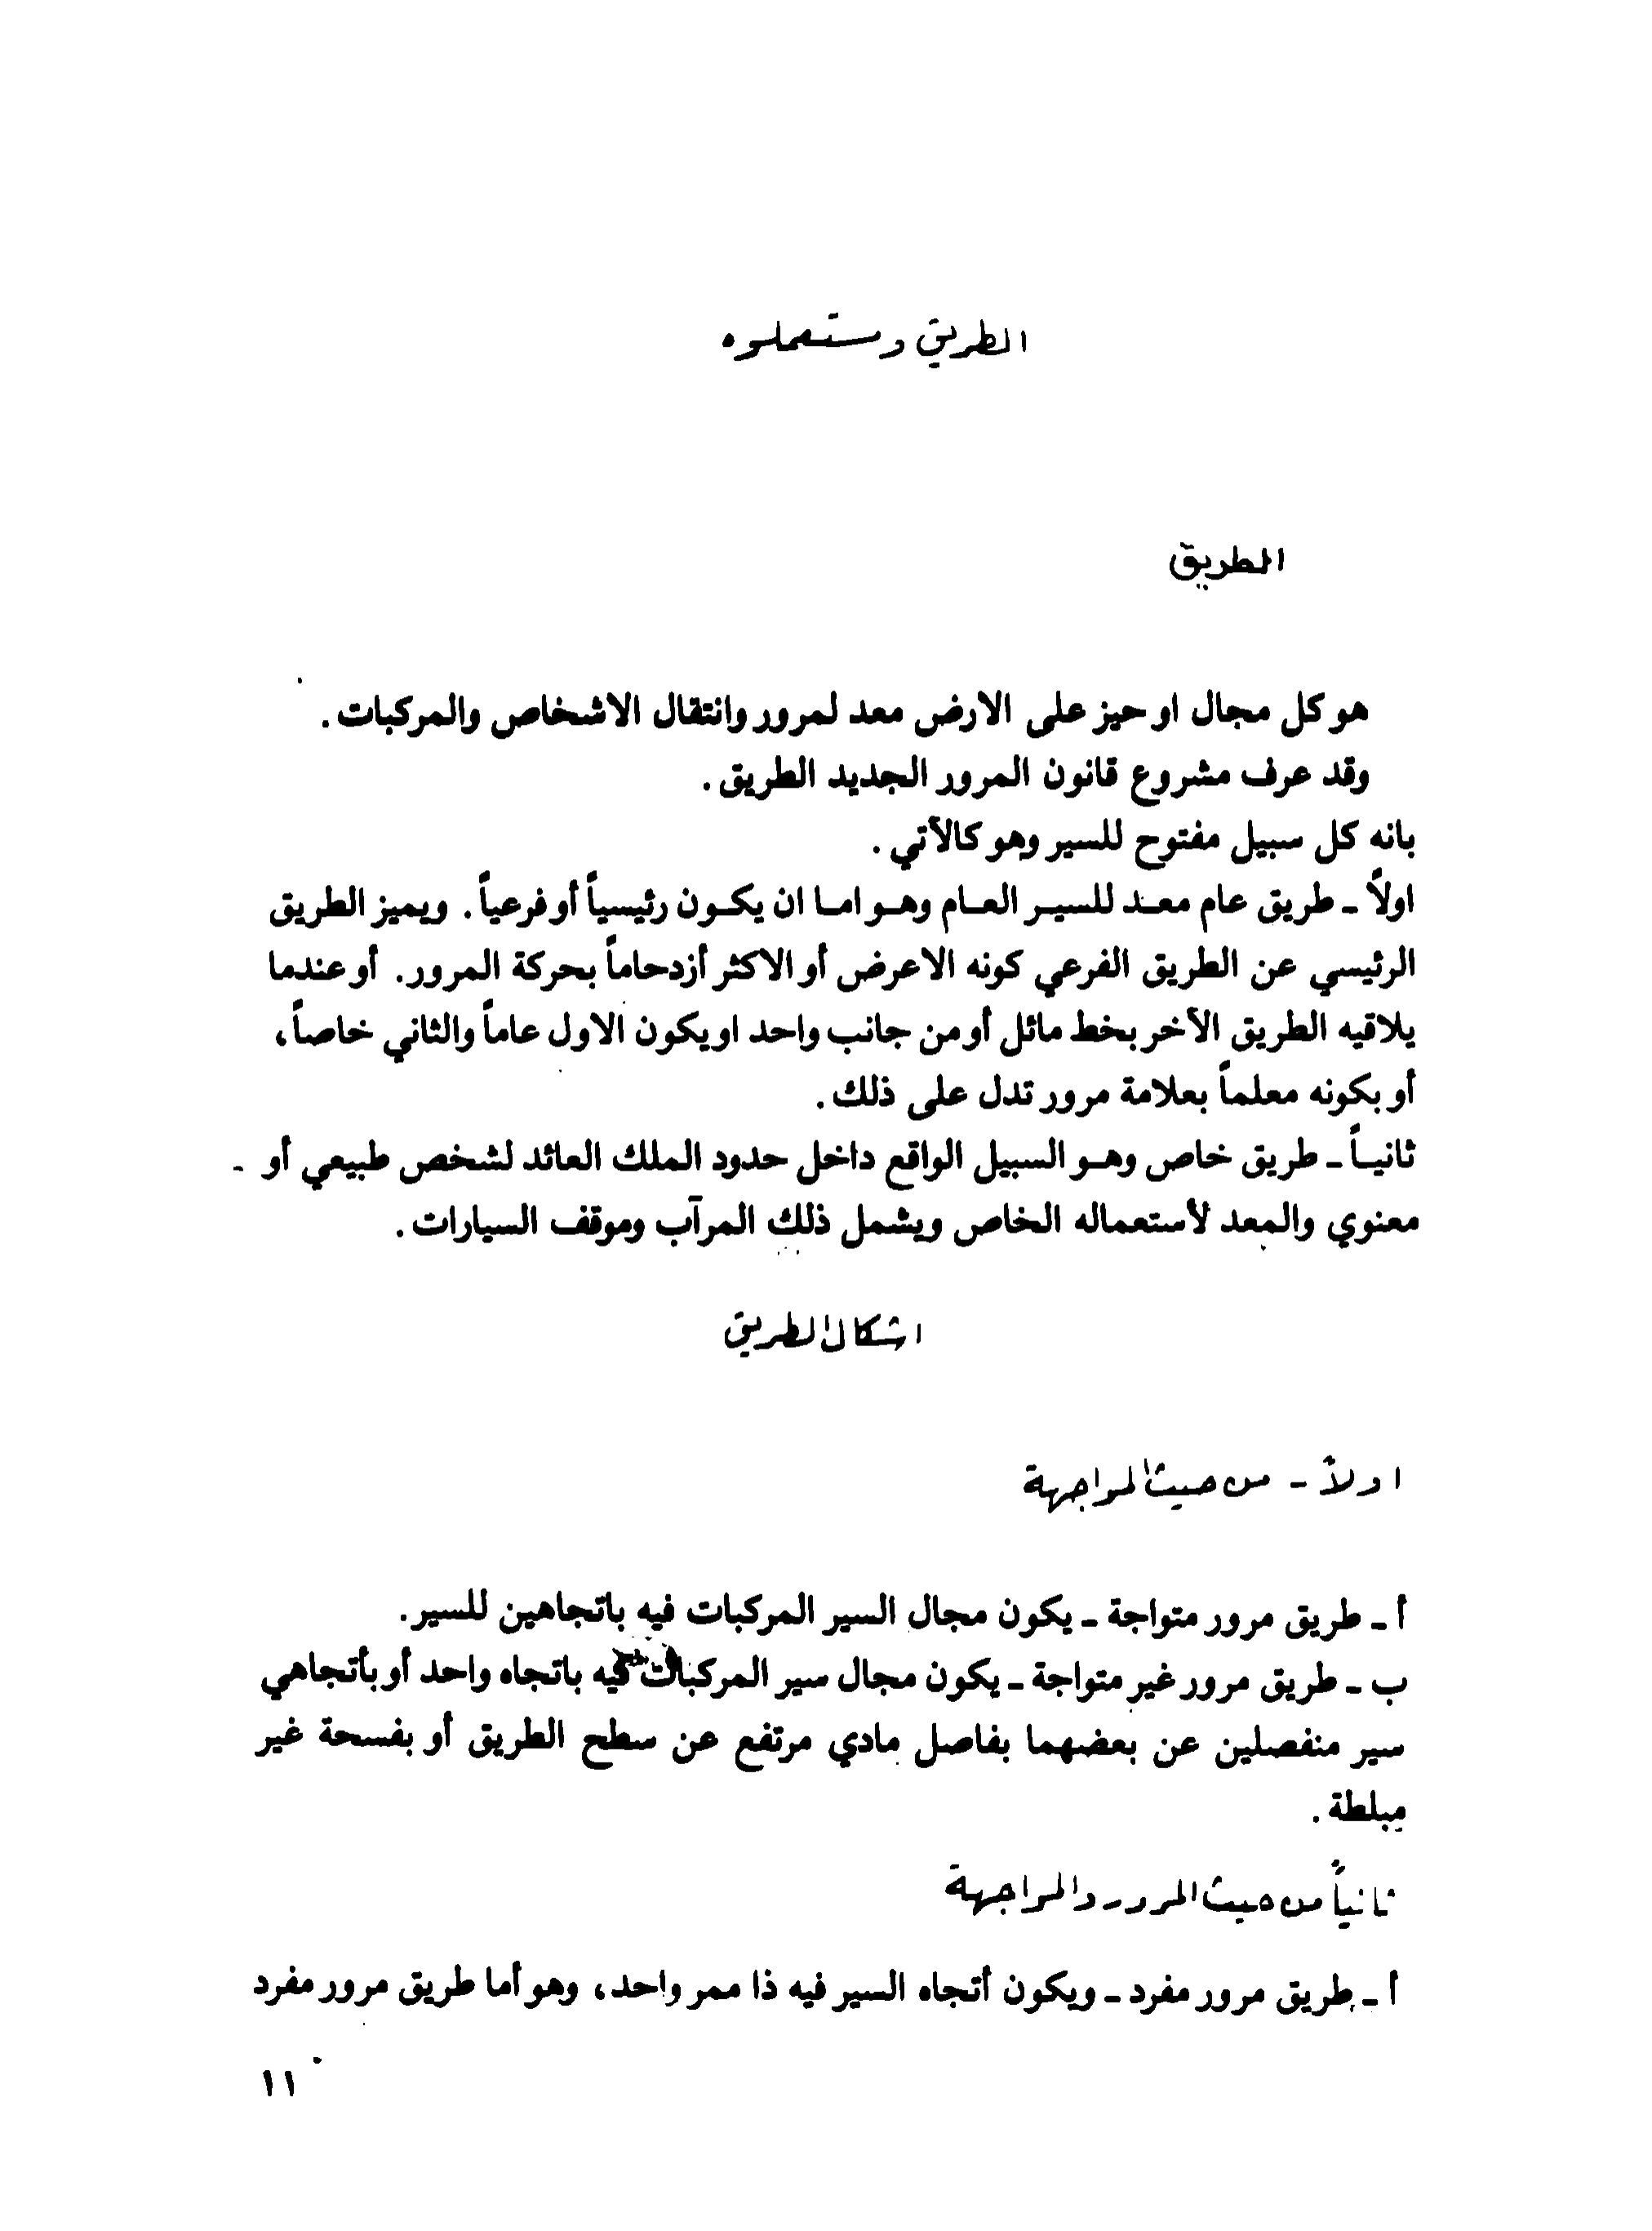 الطريق ومستعملوه
الطريق
هو كل مجال او حيز على الارض معد لمرور وانتقال الاشخاص والمركبات .
وقد عرف مشروع قانون المرور الجديد الطريق .
بانه كل سبيل مفتوح للسير وهو كالآتي .
اولاً ـ طريق عام معد للسير العام وهو اما ان يكون رئيسياً أو فرعياً . ويميز الطريق
الرئيسي عن الطريق الفرعي كونه الاعرض أو الاكثر أزدحاماً بحركة المرور . أو عندما
يلاقيه الطريق الآخر بخط مائل أو من جانب واحد او يكون الاول عاماً والثاني خاصاً ،
أو بكونه معلماً بعلامة مرور تدل على ذلك .
ثانياً ـ طريق خاص وهو السبيل الواقع داخل حدود الملك العائد لشخص طبيعي أو -
معنوي والمعد لأستعماله الخاص ويشمل ذلك المرآب وموقف السيارات .
اشكال الطريق
اولاً - من حيث المواجهة
أ ـ طريق مرور متواجة ـ يكون مجال السير المركبات فيه باتجاهين للسير .
ب ـ طريق مرور غير متواجة ـ يكون مجال سير المركبات فيه باتجاه واحد أو بأتجاهي
سير منفصلين عن بعضهما بفاصل مادي مرتفع عن سطح الطريق أو بفسحة غير
مبلطة .
ثانياً من حيث المرور والمواجهة
أ ـ طريق مرور مفرد ـ ويكون أتجاه السير فيه ذا ممر واحد ، وهو أما طريق مرور مفرد
١١